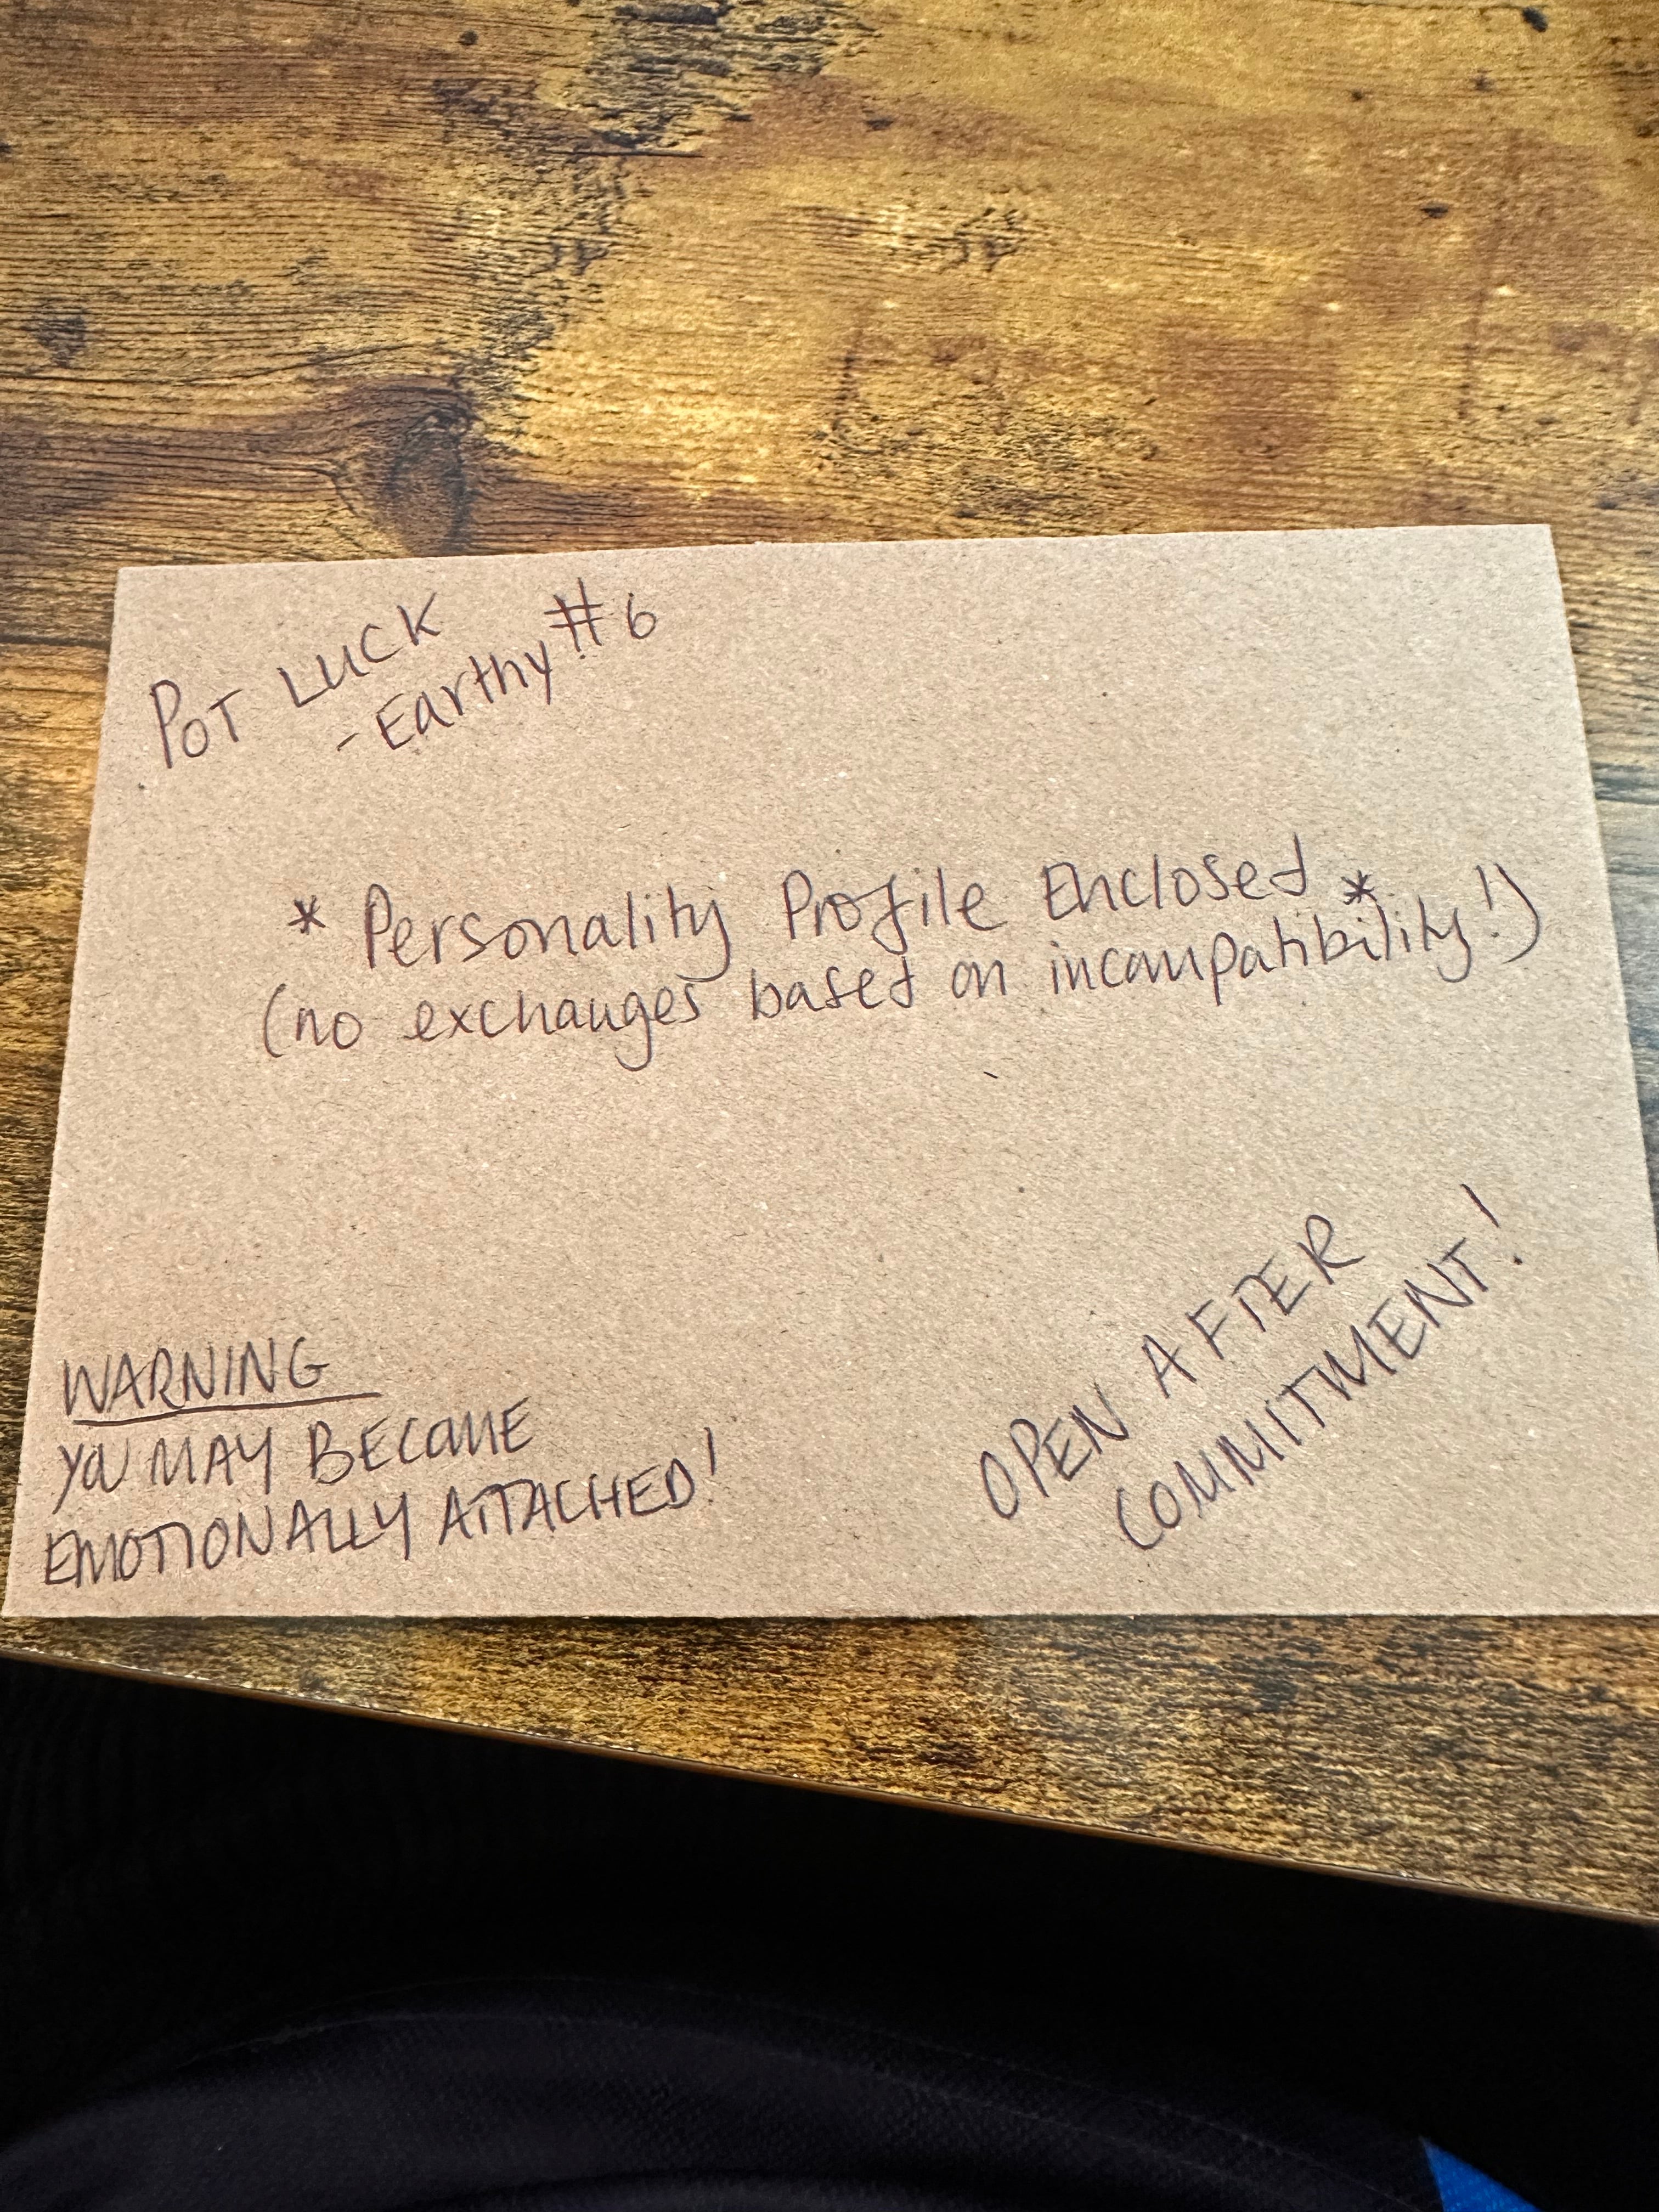 POT LUCK
- Earthy #6
* Personality Profile Enclosed *
(no exchanges based on incompatibility!)
WARNING
YOU MAY BECOME
EMOTIONALLY ATTACHED!
OPEN AFTER
COMMITMENT!